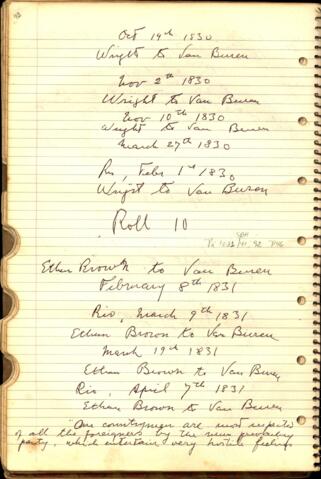 Oct 19th 1830
Wright to Van Buren
Nov 2th 1830
Wright to Van Buren
Nov 10th 1830
Wright to Van Buren
March 27th 1830
Rio, Febr 1st 1830
Wright to Van Buren
Roll 10
Ethan Brown to Van Buren
February 8th 1831
Rio, March 9th 1831
Ethan Brown to Van Buren
March 19th 1831
Ethan Brown to Van Buren
Rio, April 7th 1831
Ethan Brown to Van Buren
Our countrymen are most
of all the foreigners by the
party, which entertain very hostile feelings